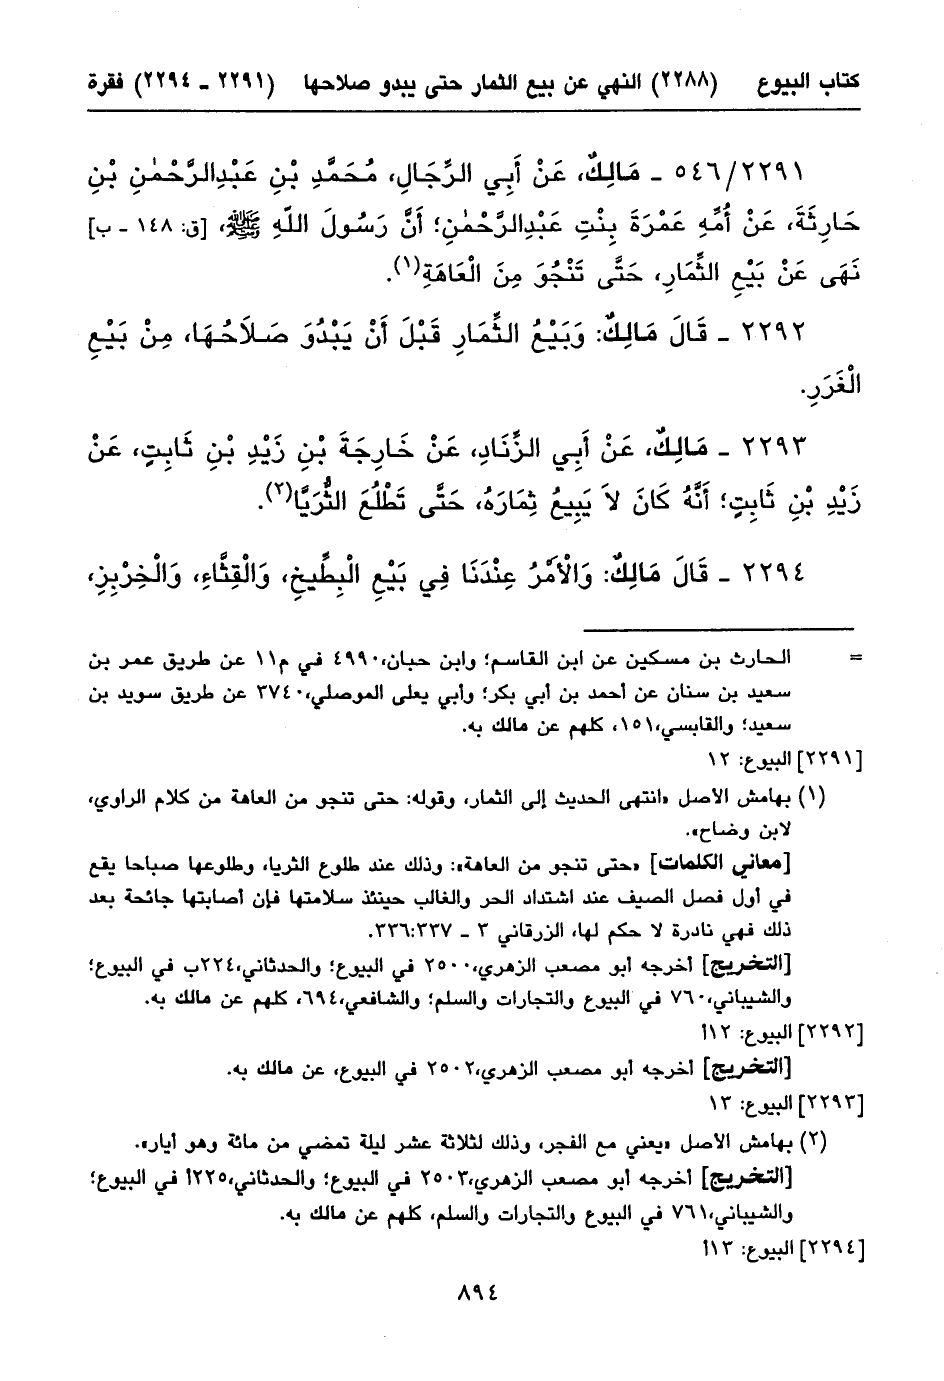 كتاب البيوع (٢٢٨٨) النهي عن بيع الثمار حتى يبدو صلاحها (٢٢٩١ ـ ٢٢٩٤) فقرة
٥٤٦/٢٢٩١ ـ مَالِكٌ، عَنْ أَبِي الرِّجَالِ، مُحَمَّدِ بْنِ عَبْدِالرَّحْمٰنِ بْنِ
حَارِثَةَ، عَنْ أُمِّهِ عَمْرَةَ بِنْتِ عَبْدِالرَّحْمٰنِ؛ أَنَّ رَسُولَ اللّهِ ﷺ، [ق: ١٤٨ ـ ب]
نَهَى عَنْ بَيْعِ الثِّمَارِ، حَتَّى تَنْجُوَ مِنَ الْعَاهَةِ(١).
٢٢٩٢ ـ قَالَ مَالِكٌ: وَبَيْعُ الثِّمَارِ قَبْلَ أَنْ يَبْدُوَ صَلاَحُهَا، مِنْ بَيْعِ
الْغَرَرِ.
٢٢٩٣ ـ مَالِكٌ، عَنْ أَبِي الزِّنَادِ، عَنْ خَارِجَةَ بْنِ زَيْدِ بْنِ ثَابِتٍ، عَنْ
زَيْدِ بْنِ ثَابِتٍ؛ أَنَّهُ كَانَ لاَ يَبِيعُ ثِمَارَهُ، حَتَّى تَطْلُعَ الثُّرَيَّا(٢).
٢٢٩٤ ـ قَالَ مَالِكٌ: وَالْأَمْرُ عِنْدَنَا فِي بَيْعِ الْبِطِّيخِ، وَالْقِثَّاءِ، وَالْخِرْبِزِ،
= الحارث بن مسكين عن ابن القاسم؛ وابن حبان، ٤٩٩٠ في م١١ عن طريق عمر بن
سعيد بن سنان عن أحمد بن أبي بكر؛ وأبي يعلى الموصلي، ٣٧٤٠ عن طريق سويد بن
سعيد؛ والقابسي، ١٥١، كلهم عن مالك به.
[٢٢٩١] البيوع: ١٢
(١) بهامش الأصل «انتهى الحديث إلى الثمار، وقوله: حتى تنجو من العاهة من كلام الراوي،
لابن وضاح».
[معاني الكلمات] «حتى تنجو من العاهة»: وذلك عند طلوع الثريا، وطلوعها صباحا يقع
في أول فصل الصيف عند اشتداد الحر والغالب حينئذ سلامتها فإن أصابتها جائحة بعد
ذلك فهي نادرة لا حكم لها، الزرقاني ٣ ـ ٣٣٦:٣٣٧.
[التخريج] أخرجه أبو مصعب الزهري، ٢٥٠٠ في البيوع؛ والحدثاني، ٢٢٤ب في البيوع؛
والشيباني، ٧٦٠ في البيوع والتجارات والسلم؛ والشافعي، ٦٩٤، كلهم عن مالك به.
[٢٢٩٢] البيوع: ١٢أ
[التخريج] أخرجه أبو مصعب الزهري، ٢٥٠٢ في البيوع، عن مالك به.
[٢٢٩٣] البيوع: ١٣
(٢) بهامش الأصل «يعني مع الفجر، وذلك لثلاثة عشر ليلة تمضي من مائة وهو أيار».
[التخريج] أخرجه أبو مصعب الزهري، ٢٥٠٣ في البيوع؛ والحدثاني، ٢٢٥أ في البيوع؛
والشيباني، ٧٦١ في البيوع والتجارات والسلم، كلهم عن مالك به.
[٢٢٩٤] البيوع: ١٣أ
٨٩٤